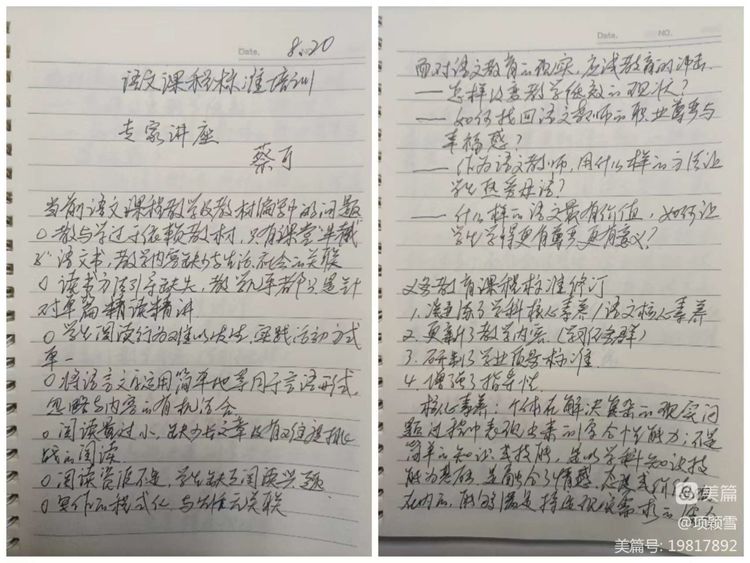 Date.
8.20
语文课程标准培训
专家讲座
蔡可
当前语文课程教学及教材编写中的问题
○教与学过于依赖教材,只有课堂单篇
语文书,教学内容缺少与生活、社会的关联
○读书方法引导缺失,教学几乎都只是针
对单篇精读精讲
○学生阅读行为难以发生,实践活动方式
单一
○将语言文字运用简单地等同于言语形式,
忽略与内容的有机结合
○阅读量过小,缺少长文章及有难度挑
战的阅读
○阅读资源不足,学生缺乏阅读兴趣
○写作的程式化,与生活无关联
Date. NO.
面对语文教育的现实,应试教育的冲击
——怎样改变教学低效的现状?
——如何找回语文教师的职业尊严与
幸福感?
——作为语文教师,用什么样的方法让
学生热爱母语?
——什么样的语文最有价值,如何让
学生学得更有尊严更有意义?
义务教育课程标准修订
1.凝练了学科核心素养/语文核心素养
2.更新了教学内容(学习任务群)
3.研制了学业质量标准
4.增强了指导性
核心素养:个体在解决复杂的现实问
题过程中表现出来的综合性能力;不是
简单的知识或技能,是以学科知识技
能为基础,是融合了情感、态度、价值观
在内的,能够满足特定现实需求的
美篇
@项颖雪
美篇号: 19817892